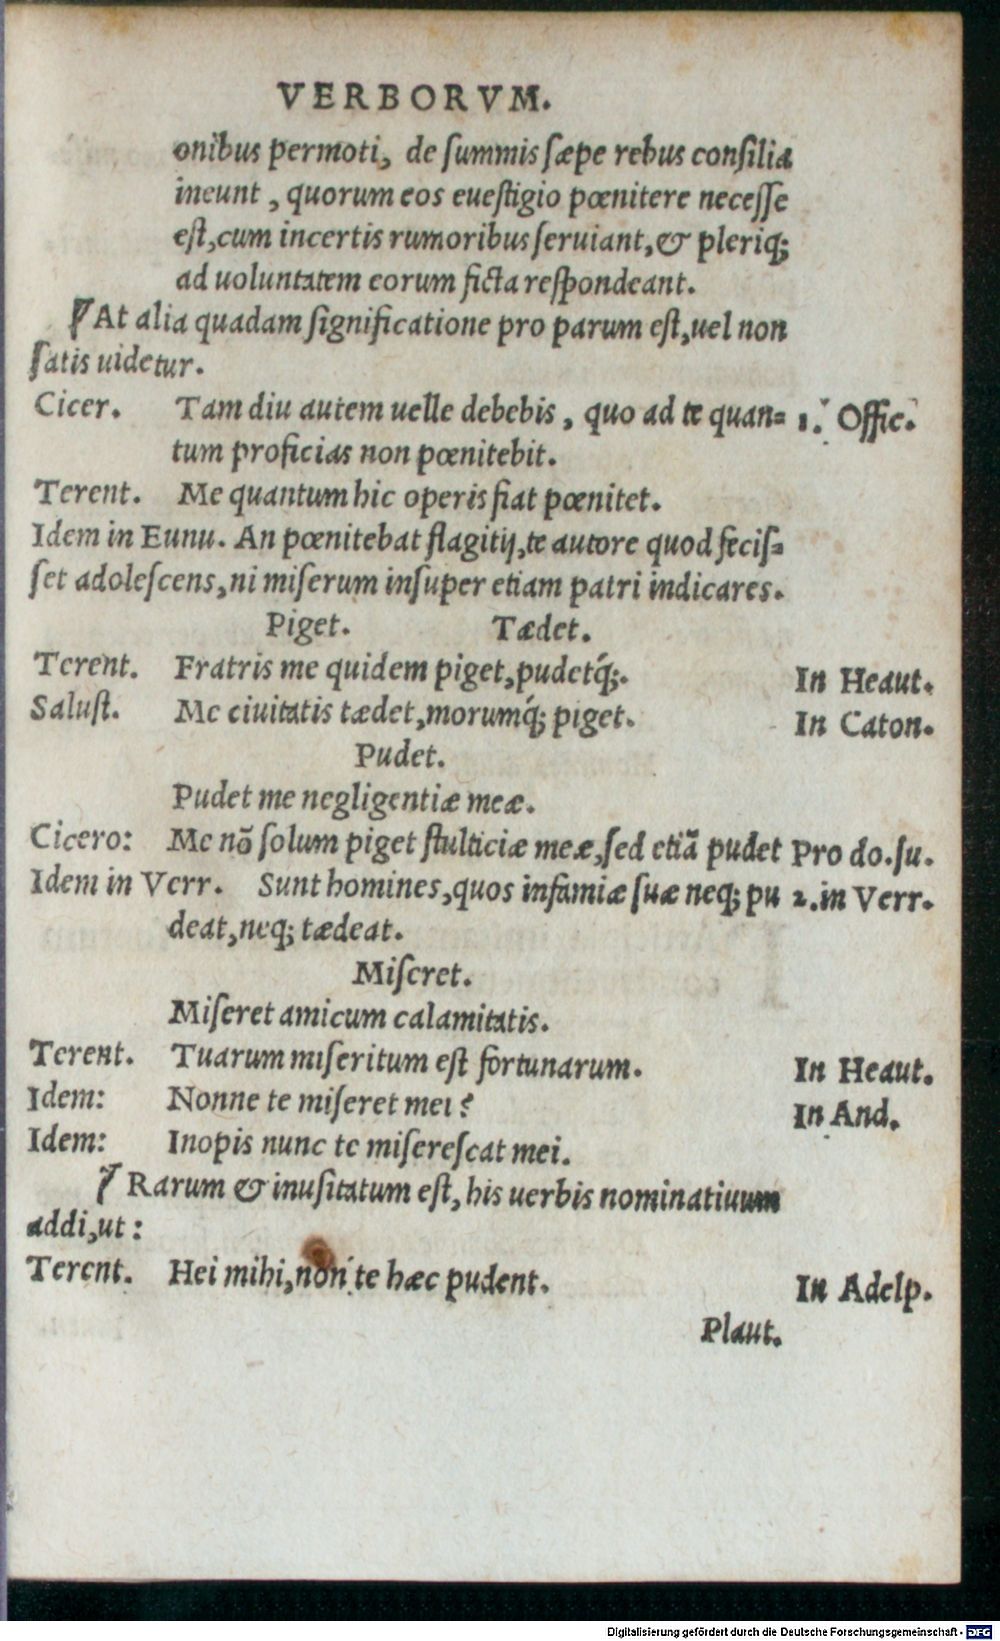 VERBORVM.
onibus permoti, de ſummis ſæpe rebus conſilia
ineunt, quorum eos eueſtigio pœnitere neceſſe
eſt, cum incertis rumoribus ſeruiant, & pleriq;
ad uoluntatem eorum ficta reſpondeant.
At alia quadam ſignificatione pro parum eſt, uel non
ſatis uidetur.
Cicer. Tam diu autem uelle debebis, quo ad te quan= 1. Offic.
tum proficias non pœnitebit.
Terent. Me quantum hic operis fiat pœnitet.
Idem in Eunu. An pœnitebat flagitij, te autore quod feciſ=
ſet adoleſcens, ni miſerum inſuper etiam patri indicares.
Piget. Tædet.
Terent. Fratris me quidem piget, pudetq́;. In Heaut.
Saluſt. Me ciuitatis tædet, morumq́; piget. In Caton.
Pudet.
Pudet me negligentiæ meæ.
Cicero: Me nõ ſolum piget ſtulticiæ meæ, ſed etiã pudet Pro do. ſu.
Idem in Verr. Sunt homines, quos infamiæ ſuæ neq; pu 2. in Verr.
deat, neq; tædeat.
Miſeret.
Miſeret amicum calamitatis.
Terent. Tuarum miſeritum eſt fortunarum. In Heaut.
Idem: Nonne te miſeret mei? In And.
Idem: Inopis nunc te miſereſcat mei.
Rarum & inuſitatum eſt, his uerbis nominatiuum
addi, ut:
Terent. Hei mihi, non te hæc pudent. In Adelp.
Plaut.
Digitalisierung gefördert durch die Deutsche Forschungsgemeinschaft - DFG